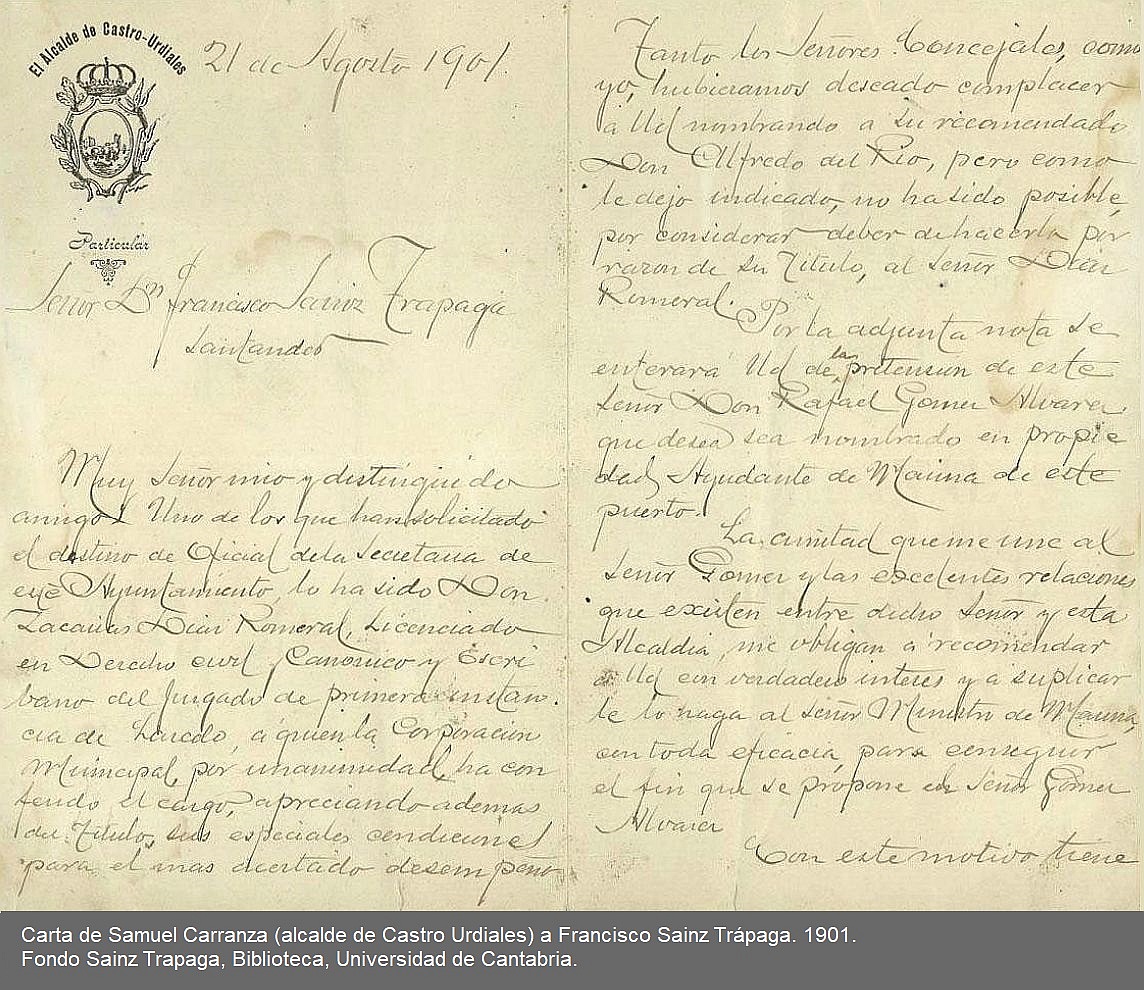 El Alcalde de Castro-Urdiales
21 de Agosto 1901.
Particular
Señor Dn Francisco Sainz Trapaga
Santander
Muy Señor mio y distinguido
amigo: Uno de los que han solicitado
el destino de Oficial de la Secretaria de
este Ayuntamiento, lo ha sido Don
Zacarias Diaz Romeral, Licenciado
en Derecho civil y Canonico y Escri
bano del Juzgado de primera instan
cia de Laredo, á quien la Corporacion
Municipal, por unanimidad, ha con
ferido el cargo, apreciando ademas
del Titulo, sus especiales condiciones
para el mas acertado desempeño
Tanto los Señores Concejales, como
yo, hubieramos deseado complacer
á Ud nombrando a su recomendado
Don Alfredo del Rio, pero como
le dejo indicado, no ha sido posible,
por considerar deber de hacerlo por
razon de su Titulo, al Señor Diaz
Romeral.
Por la adjunta nota se
enterará Ud de la pretension de este
Señor Don Rafael Gomez Alvarez
que desea sea nombrado en propie
dad, Ayudante de Marina de este
puerto.
La amitad que me une al
Señor Gomez y las excelentes relaciones
que existen entre dicho Señor y esta
Alcaldia, me obligan á recomendar
á Ud con verdadero interes y a suplicar
le lo haga al Señor Ministro de Marina,
con toda eficacia, para conseguir
el fin que se propone el Señor Gomez
Alvarez
Con este motivo tiene
Carta de Samuel Carranza (alcalde de Castro Urdiales) a Francisco Sainz Trápaga. 1901.
Fondo Sainz Trapaga, Biblioteca, Universidad de Cantabria.